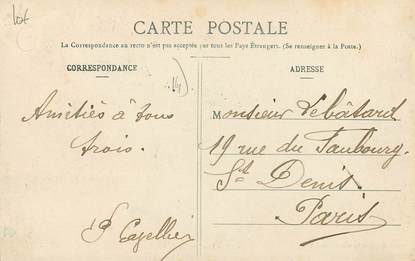 lot
CARTE POSTALE
La Correspondance au recto n'est pas acceptée par tous les Pays Étrangers. (Se renseigner à la Poste.)
CORRESPONDANCE
ADRESSE
Amitiés à tous
trois.
Monsieur Lebâtard
19 rue du Faubourg
St Denis
Paris